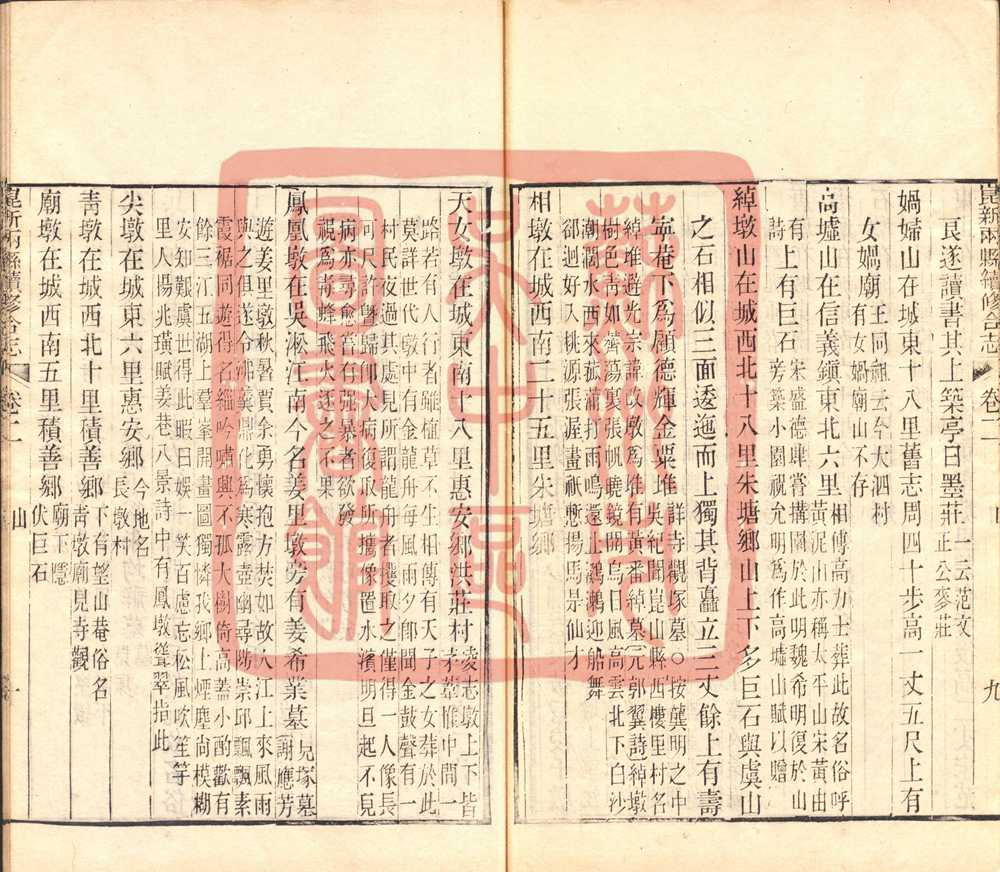 崑新兩縣續修合志 卷二 九
良遂讀書其上築亭曰墨莊一云范文正公麥莊
媧婦山在城東十八里舊志周四十步高一丈五尺上有
女媧廟王同祖云今大泗村有女媧廟山不存
高墟山在信義鎮東北六里相傳高力士葬此故名俗呼黃泥山亦稱太平山宋黃由
有上有巨石宋盛德肆嘗搆園於此明魏希明復於山旁築小園祝允明爲作高墟山賦以贈
詩
綽墩山在城西北十八里朱塘鄉山上下多巨石與虞山
之石相似三面透迤而上獨其背矗立三丈餘上有壽
寧菴下爲顧德輝金粟堆詳寺觀塚墓○按龔明之中吳紀聞崑山縣西樓里村名
綽堆避光宗諱改墩爲堆有黃番綽墓元郭翼詩綽墩
樹色靑如薺蕩裏張帆曉鏡開烏目風高雲北下白沙
潮濶水西來菰蒲打雨鳴還止鸂鶒迎船舞
郤迴好入桃源張渥畫祇慙揚馬是仙才
相墩在城西南三十五里朱塘鄉
天女墩在城東南十八里惠安鄉洪莊村凌志墩上下皆茅葦惟中間一
路若有人行者雖植草不生相傳有天子之女葬於此
莫詳世代墩中有金龍舟每風雨夕卽聞金鼓聲有一
村民夜過其處見所謂龍舟者攫取之僅得一人像長
可尺許擧歸卽大病復取所攜像置水濱明旦起不見
病亦尋愈舊有強暴者欲發
視爲靑蜂飛火逐之不果
鳳凰墩在吳淞江南今名姜里墩旁有姜希業墓見塚墓謝應芳
遊姜里墩秋暑賈余勇懷抱方焚如故人江上來風雨
與之俱遂令跳糞鼎化爲寒露壺尋幽防崇邱飄飄素
霞裾同遊得名緇吟嘯興不孤大樹倚高蓋小酌歡有
餘三江五湖上墓峯開畫圖獨憐我鄉上煙塵尚模糊
安知艱虞世得此暇日娛一笑百慮忘松風吹笙竽
里人揚兆璜賦姜巷八景詩中有鳳墩聳翠指此
尖墩在城東六里惠安鄉今地名長墩村
靑墩在城西北十里積善鄉下有望山菴俗名靑墩廟見寺觀
廟墩在城西南五里積善鄉廟下隱伏巨石
崑新兩縣續修合志 卷二 山 十